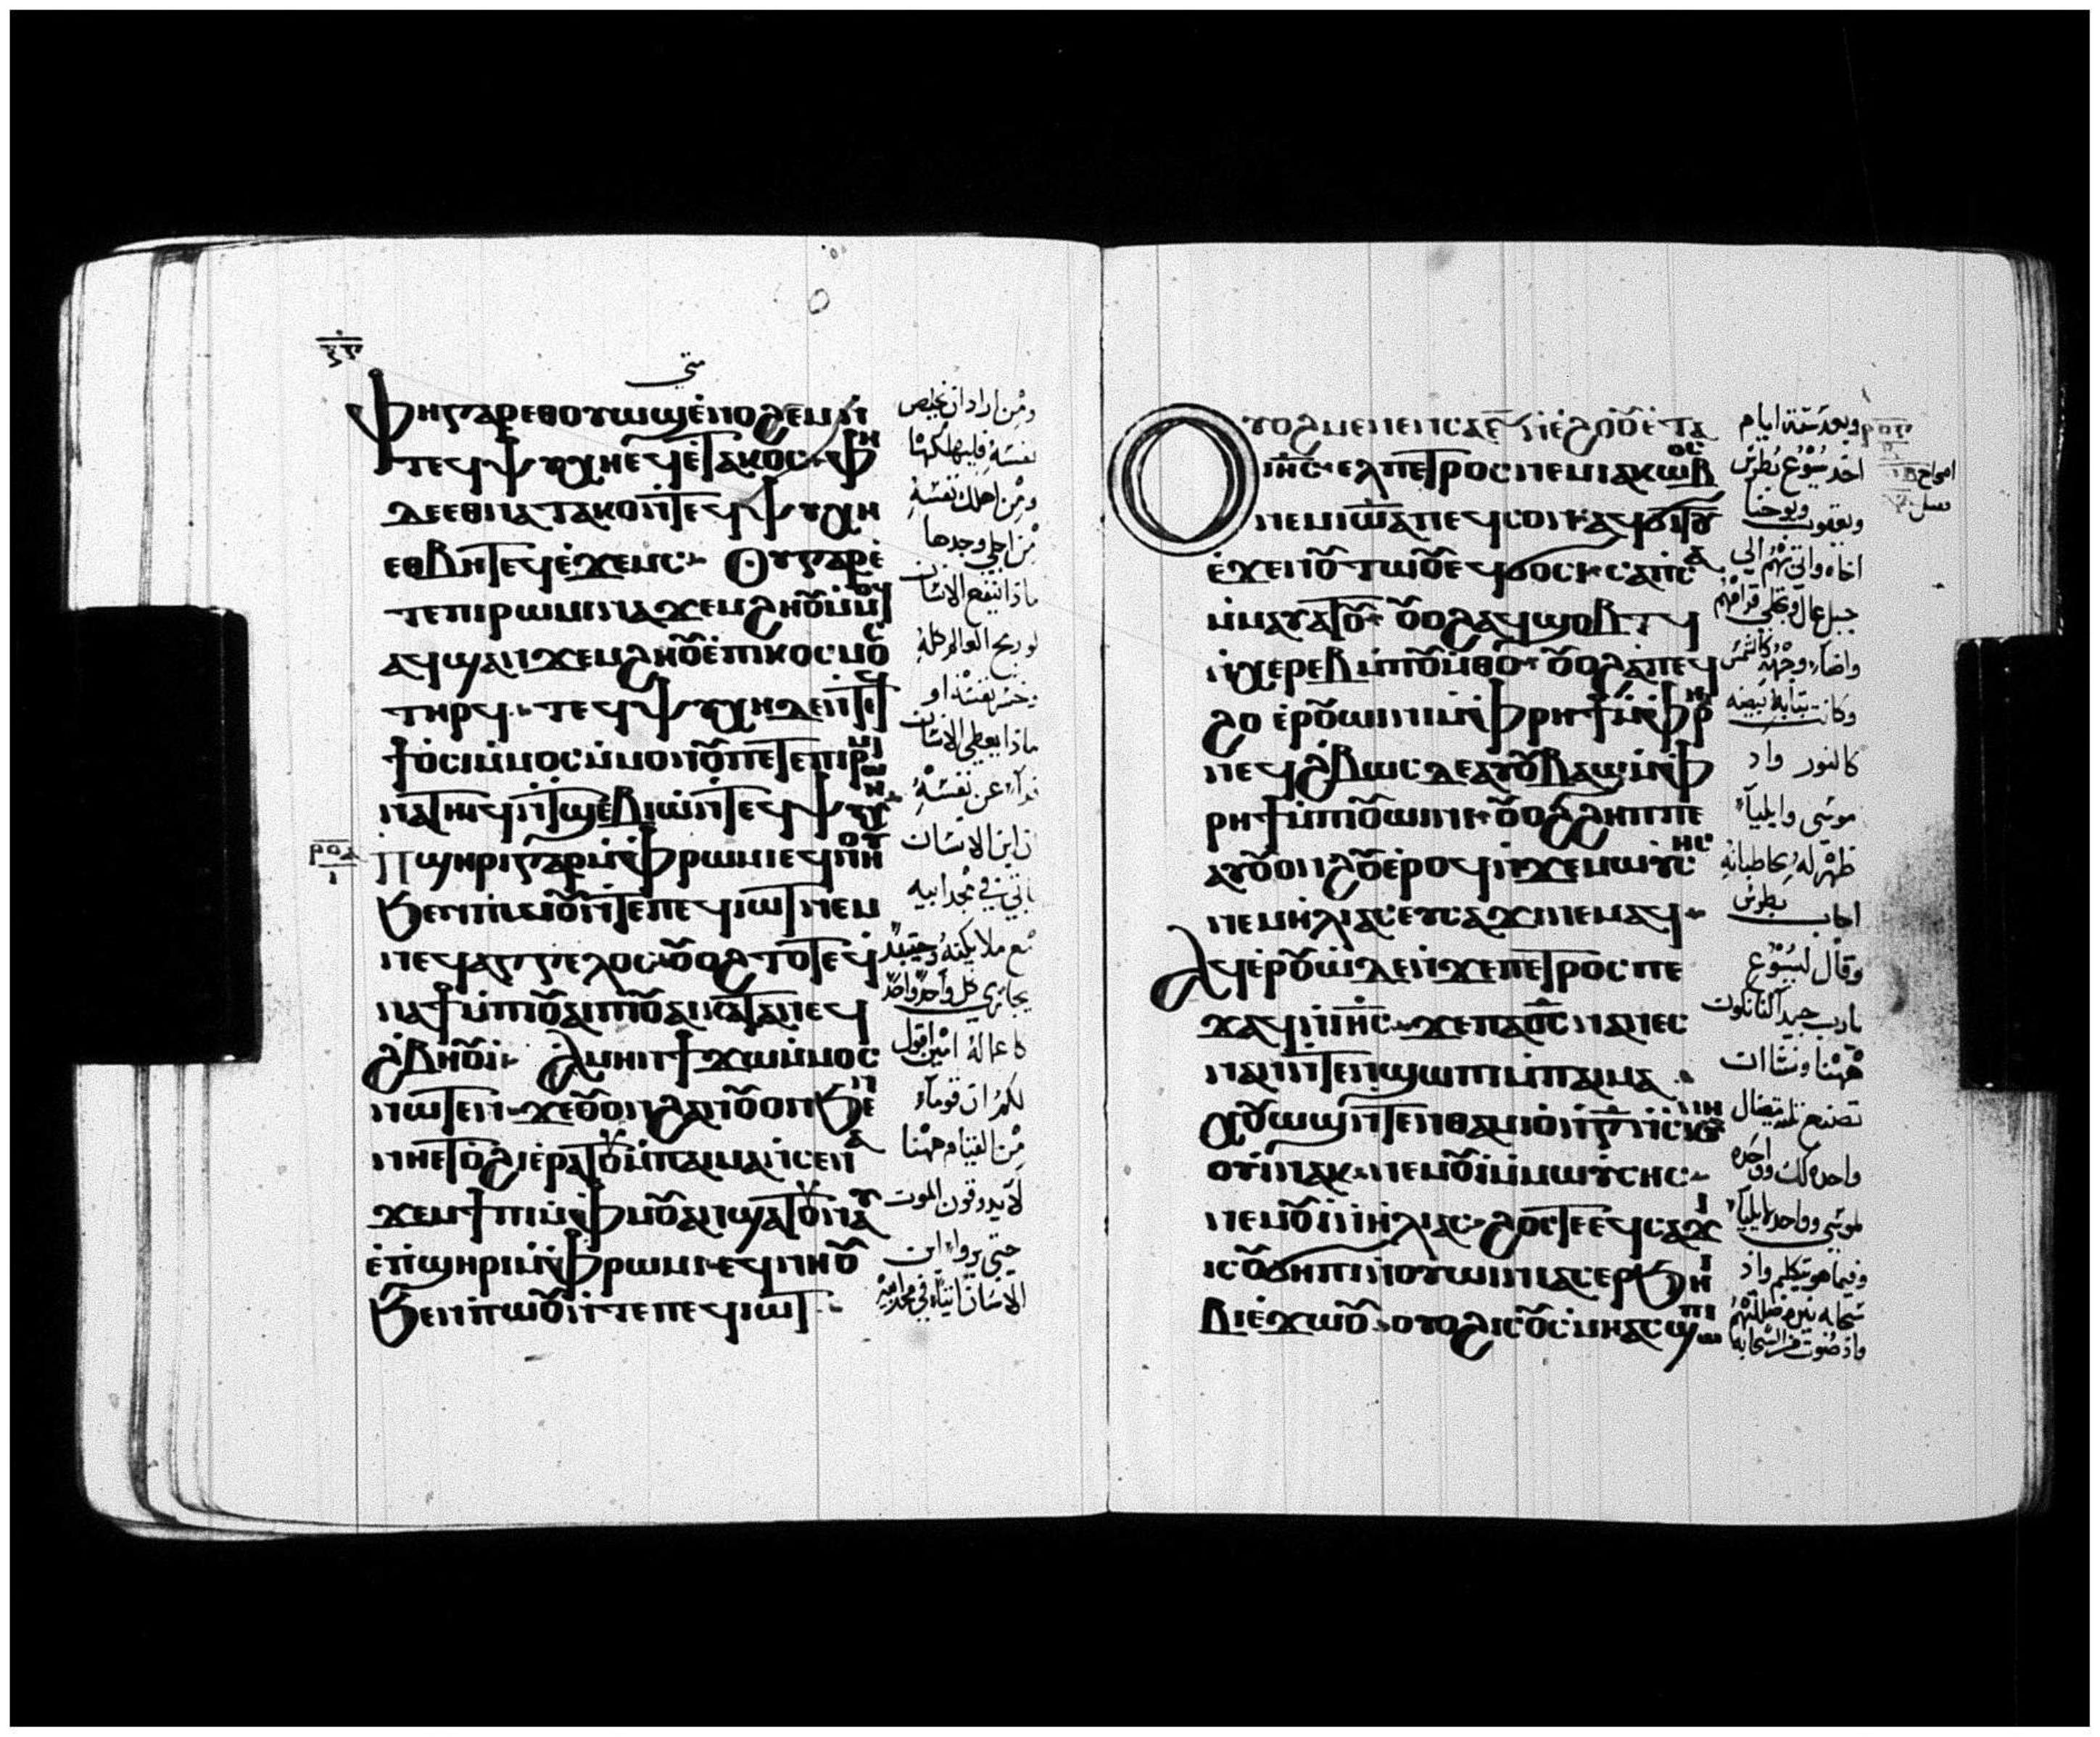 متى
ⲫⲏⲅⲁⲣⲉⲑⲟⲩⲱϣⲉ̀ⲛⲟϩⲉⲙⲛ̀
ⲧⲉϥⲯⲩⲭⲏⲉϥⲉ̀ⲧⲁⲕⲟⲥ ⲫⲏ
ⲇⲉⲉⲑⲛⲁⲧⲁⲕⲟⲛ̀ⲧⲉϥⲯⲩⲭⲏ
ⲉⲑⲃⲏⲧⲉϥⲉ̀ϫⲉⲙⲥ Ⲟⲩⲅⲁⲣⲉ̀
ⲧⲉⲡⲓⲣⲱⲙⲓⲛⲁϫⲉⲙϩⲏⲟⲩⲙ̀ⲙⲟϥ
ⲁϥϣⲁⲛϫⲉⲙϩⲏⲟⲩⲉ̀ⲡⲓⲕⲟⲥⲙⲟⲥ
ⲧⲏⲣϥ ⲧⲉϥⲯⲩⲭⲏⲇⲉⲛ̀ⲧⲉϥ
ϯⲟ̀ⲥⲓⲙ̀ⲙⲟⲥ ⲙ̀ⲙⲟⲛⲟⲩⲡⲉⲧⲉⲡⲓⲣⲱⲙⲓ
ⲛⲁⲧⲏⲓϥⲛ̀ⲧϣⲉⲃⲓⲱ̀ⲛ̀ⲧⲉϥⲯⲩⲭⲏ
Ⲡϣⲏⲣⲓⲅⲁⲣⲙ̀ⲫⲣⲱⲙⲓⲉϥⲛⲏⲟⲩ
ϧⲉⲛⲡⲱ̀ⲟⲩⲛ̀ⲧⲉⲡⲉϥⲓⲱⲧⲛⲉⲙ
ⲛⲉϥⲁⲅⲅⲉⲗⲟⲥ ⲟⲩⲟϩ ⲧⲟⲧⲉϥ
ⲛⲁϯⲙ̀ⲡⲓⲟⲩⲁⲓⲡⲓⲟⲩⲁⲓⲕⲁⲧⲁⲛⲉϥ
ϩⲃⲏⲟⲩⲓ̀ Ⲁⲙⲏⲛϯϫⲱⲙ̀ⲙⲟⲥ
ⲛⲱⲧⲉⲛ ϫⲉⲟⲩⲟⲛϩⲁⲛⲟⲩⲟⲛϧⲉⲛ
ⲛⲏⲉⲧⲟ̀ϩⲓⲉ̀ⲣⲁⲧⲟⲩⲙ̀ⲡⲁⲓⲙⲁⲛ̀ⲥⲉⲛⲁ
ϫⲉⲙϯⲡⲓⲙ̀ⲫⲙⲟⲩⲁⲛϣⲁⲧⲟⲩⲛⲁⲩ
ⲉ̀ⲡ̀ϣⲏⲣⲓⲙ̀ⲫⲣⲱⲙⲓ ⲉϥⲛⲏⲟⲩ
ϧⲉⲛⲡ̀ⲱⲟⲩⲛ̀ⲧⲉⲡⲉϥⲓⲱⲧ
ومن اراد ان يخلص
نفسه فليهلكها
ومن اهلك نفسه
من اجلي وجدها
ماذا ينتفع الانسان
لو ربح العالم كله
وخسر نفسه او
ماذا يعطي الانسان
فداء عن نفسه
ان ابن الانسان
ياتي في مجد ابيه
مع ملايكته وحينيذ
يجازي كل واحد واحد
كاعماله امين اقول
لكم ان قوماً
من القيام ههنا
لا يدوقون الموت
حتى يروا ابن
الانسان اتياً في مجد ابيه
Ⲟⲩⲟϩⲙⲉⲛⲉⲛⲥⲁⲋ̅ⲛ̀ⲉ̀ϩⲟⲟⲩⲉ̀ⲧⲁ
ⲓⲏ̅ⲥ̅ ⲉⲗⲡⲉⲧⲣⲟⲥⲛⲉⲙⲓⲁⲕⲱⲃⲟⲥ
ⲛⲉⲙⲓⲱⲁ̅ⲡⲉϥⲥⲟⲛ ⲁϥϭⲓⲧⲟⲩ
ⲉ̀ϫⲉⲛⲟⲩⲧⲱⲟⲩⲉϥϭⲟⲥⲓ ⲥⲁⲡⲥⲁ
ⲙ̀ⲙⲁⲩⲁⲧⲟⲩ ⲟⲩⲟϩⲁϥϣⲟⲃⲧϥ
ⲛ̀ⲭⲉⲣⲉⲃⲙ̀ⲡⲟⲩⲙ̀ⲑⲟ ⲟⲩⲟϩⲁ̀ⲡⲉϥ
ϩⲟ ⲉⲣⲟⲩⲱⲓⲛⲓⲙ̀ⲫⲣⲏϯⲙ̀ⲫⲣⲏ
ⲛⲉϥϩ̀ⲃⲱⲥⲇⲉⲁⲩⲟⲩⲃⲁϣⲙ̀ⲫ
ⲣⲏϯⲙ̀ⲡⲓⲟⲩⲱⲓⲛⲓ ⲟⲩⲟϩϩⲏⲡⲡⲉ
ⲁⲩⲟⲩⲟⲛϩⲟⲩⲉ̀ⲣⲟϥⲛ̀ϫⲉⲙⲱⲩⲥⲏⲥ
ⲛⲉⲙⲏ̀ⲗⲓⲁⲥ ⲉⲩⲥⲁϫⲓⲛⲉⲙⲁϥ
Ⲁϥⲉⲣⲟⲩⲱ̀ⲇⲉⲛ̀ϫⲉⲡⲉⲧⲣⲟⲥⲡⲉ
ϫⲁϥⲛ̀ⲓⲏ̅ⲥ̅ ϫⲉⲡⲁⲟ̅ⲥ̅ⲛⲁⲛⲉⲥ
ⲛⲁⲛⲛ̀ⲧⲉⲛϣⲱⲡⲓⲙ̀ⲡⲁⲓⲙⲁ
ⲭⲟⲩⲱϣⲛ̀ⲧⲉⲛⲑⲁⲙⲓⲟ̀ⲛ̀ⲅ̅ⲛ̀ⲥⲕⲏⲛⲏ
ⲟⲩⲓ̀ⲛⲁⲕ ⲛⲉⲙⲟⲩⲓ̀ⲙ̀ⲙⲱⲩⲥⲏⲥ
ⲛⲉⲙⲟⲩⲓ̀ⲛ̀ⲏ̀ⲗⲓⲁⲥ ϩⲟⲥⲧⲉⲉϥⲥⲁϫⲓ
ⲓⲥⲟⲩϭⲏⲡⲓⲛ̀ⲟⲩⲱⲓⲛⲓⲁⲥⲉⲣϧⲏⲓ
ⲃⲓⲉ̀ϫⲱⲟⲩ ⲟⲩⲟϩⲓⲥⲟⲩⲥⲙⲏⲁⲥϣⲱⲡⲓ
وبعد ستة ايام
اخد يسوع بطرس
ويعقوب ويوحنا
اخاه واتى بهم الى
جبل عال وتجلى قدامهم
واضاء وجهه كالشمس
وكانت ثيابه بيضه
كالنور واد
موسى وايلياء
ظهر له يخاطبانه
اجاب بطرس
وقال ليسوع
يارب جيد النا نكون
ههنا ونشاء ان
نصنع ثلث مظال
واحده لك وواحده
لموسى وواحده لايلياء
وفيما هو يتكلم واد
سحابه نيره ظللتهم
واذ صوت من السحابه